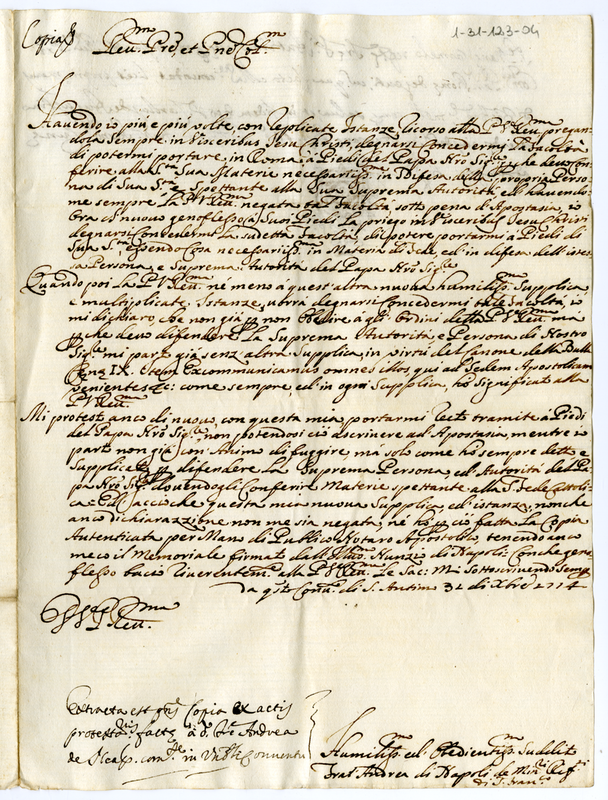 Copia
1-31-123-04
Reu. Prē, et Prōe Col.
Hauendo io più, e più uolte, con replicate Istanze, ricorso alla P. V. Reu.ma pregan
dola sempre in Visceribus Jesu Christi, degnarsi Concedermi la facoltà
di potermi portare, in Roma, à Piedi del Papa Nrō Sig.re che deuo con
ferire, alla S.tà Sua Materie necessariss.e in Difesa della propria Perso
na di Sua S.tà e spettante alla Sua Suprema Autorità, ed hauendo
me sempre la P. V. Reu.ma negata tal facoltà sotto pena d'Apostasia, io
ora di nuouo genoflesso, à Suoi Piedi la priego in visceribus Jesu Christi
degnarsi Concedermi la sudetta facoltà, di potere portarmi à Piedi di
Sua S.tà essendo Cosa necessariss.a in Materia di Fede, ed in difesa dell'istes
sa Persona, e Suprema Autorità del Papa Nrō Sig.re
Quando poi la P. V. Reu.ma nè meno a quest'altra nuoua humiliss.a Supplica,
e multiplicate Istanze, uorrà degnarsi Concedermi tale facoltà, io
mi dichiaro, che non già per non Obedire à gl'Ordini della P. V. Reu.ma ma
perche deuo difendere la Suprema Autorità, e Persona di Nostro
Sig.re mi parto già senz'altra Supplica, in virtù del Canone della Bulla
Item excommunicamus omnes illos, qui ad Sedem Apostolicam
venientes &c: come sempre, ed in ogni Supplica, hò significato alla
P. V. Reu.ma
Mi protesto anco di nuouo, con questa mia portarmi recto tramite à Piedi
del Papa Nrō Sig.re non potendosi ciò ascriuere ad Apostasia, mentre io
parto non già con Animo di fuggire, ma solo come hò sempre detto e
Supplicato per difendere la Suprema Persona, ed Autorità del Pa
pa Nrō Sig.re douendogli Conferire Materie spettante alla S. Sede Cattoli
ca. Ed acciòche questa mia nuoua Supplica, ed istanza, nonche
anco dichiarazzione non me sia negata, ne hò per ciò fatta la Copia
Autenticata per Mano di Publico Notaro Apostolico, tenendo anco
meco il Memoriale firmato dall'Ill.mo Nunzio di Napoli: Con che geno
flesso bacio riuerentem.te alla P. V. Reu.ma le Sac: M. Sottoscriuendo Sempre
Da q.sto Conu.to di S. Antimo 31 di Xbre 1714
P. V. Reu.ma
Extracta est Copia ex actis
protesta factæ à Fre Andrea
de Neap. in Conuentu
Humiliss.o ed Obedientiss.o Suddito
Frat' Andrea di Napoli de Min. Rif.ti
di S. Fran.co